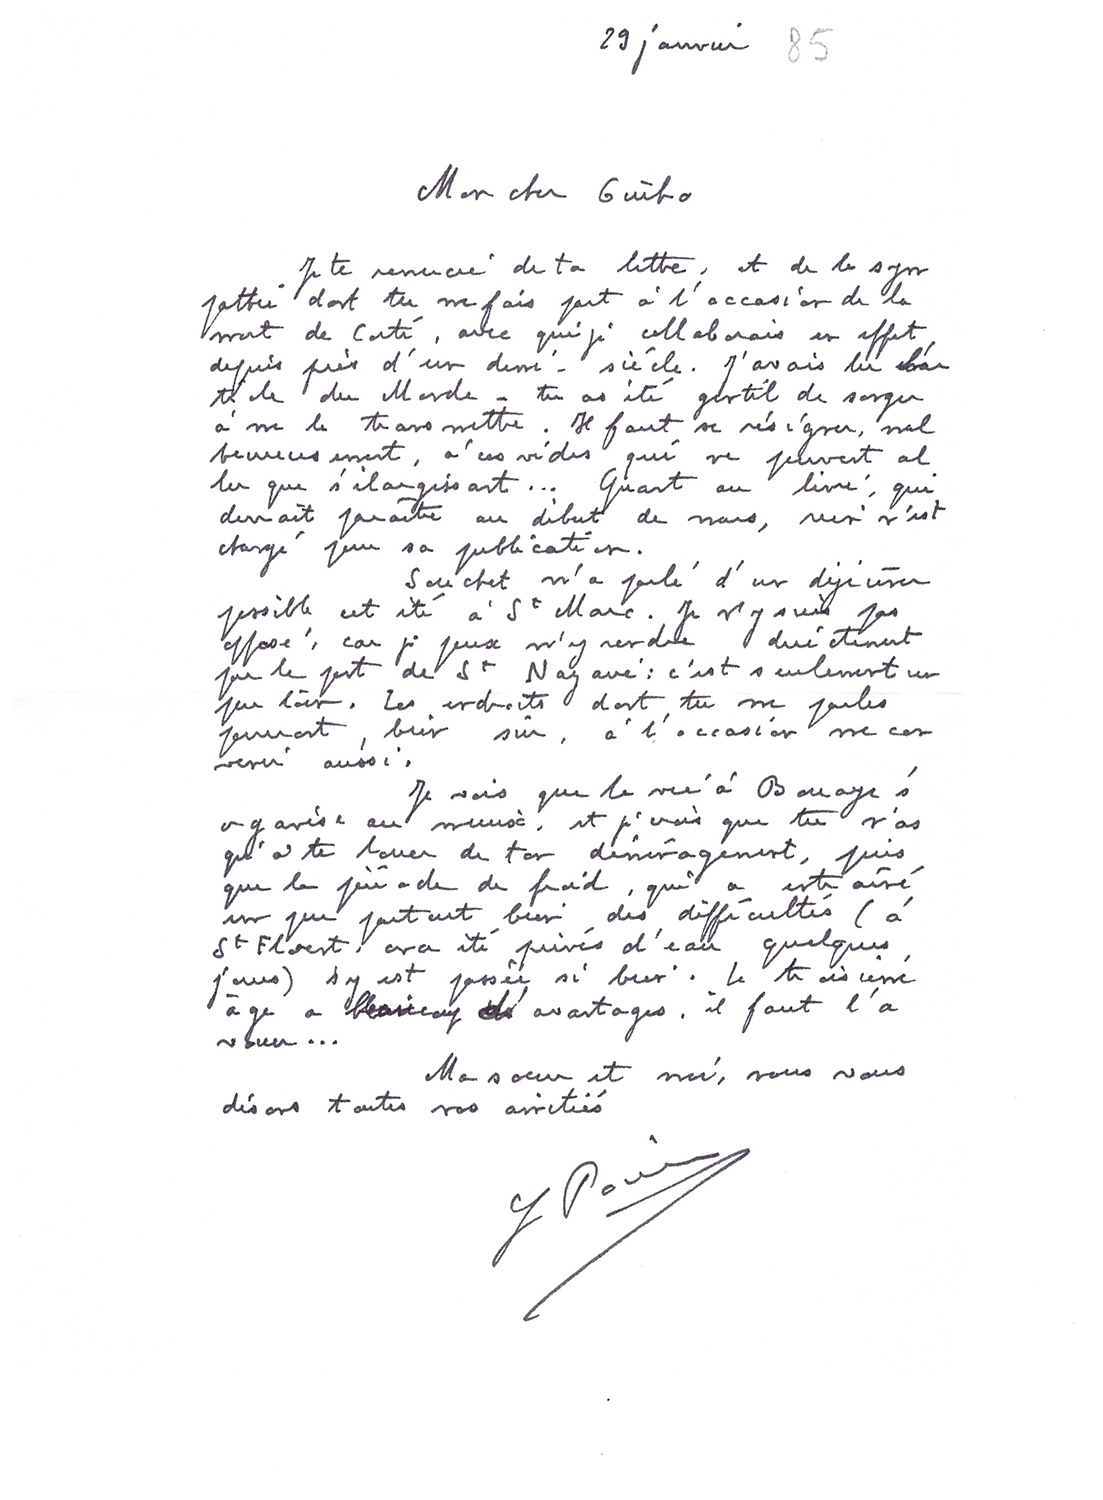 29 janvier 85
Mon cher Guibo
Je te remercie de ta lettre, et de la sym
pathie dont tu me fais part à l'occasion de la
mort de Corti, avec qui je collaborais en effet
depuis près d'un demi-siècle. J'avais lu l'ar
ticle du Monde - tu as été gentil de songer
à me le transmettre. Il faut se résigner, mal
heureusement, à ces vides qui ne peuvent al
ler que s'élargissant... Quant au livre, qui
devrait paraître au début de mars, rien n'est
changé pour sa publication.
Souchet m'a parlé d'un déjeuner
possible cet été à St Marc. Je n'y suis pas
opposé, car je peux m'y rendre directement
par le pont de St Nazaire : c'est seulement un
peu loin. Les endroits dont tu me parles
pourront, bien sûr, à l'occasion me con
venir aussi.
Je vois que la vie à Bouaye s'
organise au mieux, et je vois que tu n'as
qu'à te louer de ton déménagement, puis
que la période de froid, qui a entraîné
un peu partout bien des difficultés (à
St Florent on a été privés d'eau quelques
jours) s'y est passée si bien. Le troisième
âge a beaucoup d'avantages, il faut l'a
vouer...
Ma soeur et moi, nous vous
disons toutes nos amitiés